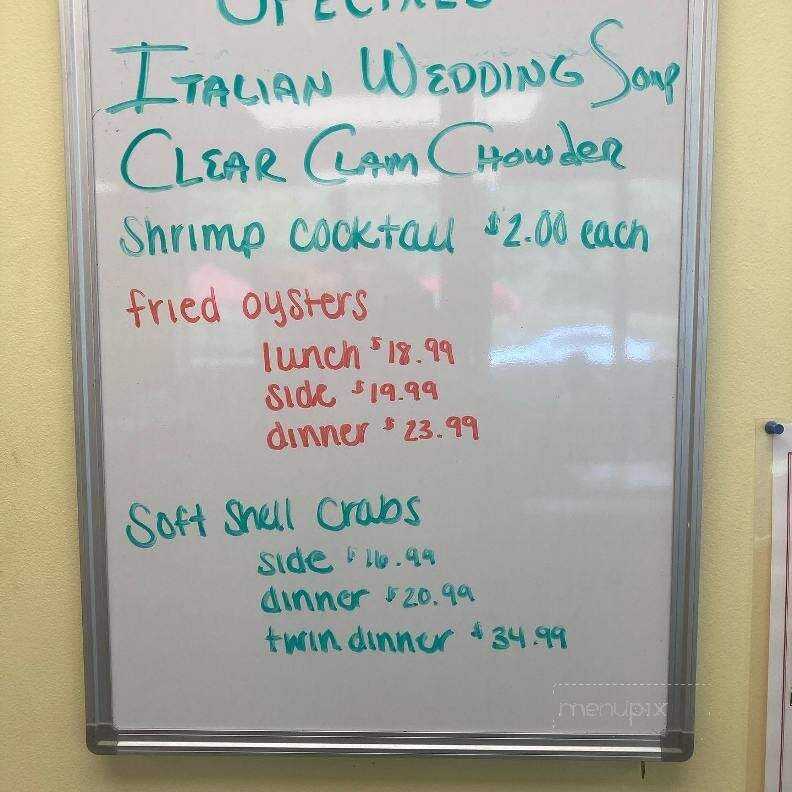 SPECIALS
ITALIAN WEDDING Soup
CLEAR CLAM CHOWDER
Shrimp cocktail $2.00 each
fried oysters
lunch $18.99
side $19.99
dinner $23.99
Soft Shell Crabs
side $16.99
dinner $20.99
twin dinner $34.99
menupix